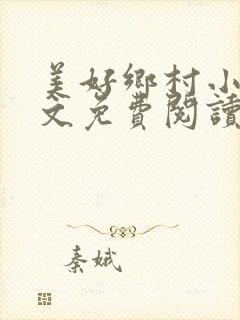 美好鄉村小
文免費閱讀
秦娥